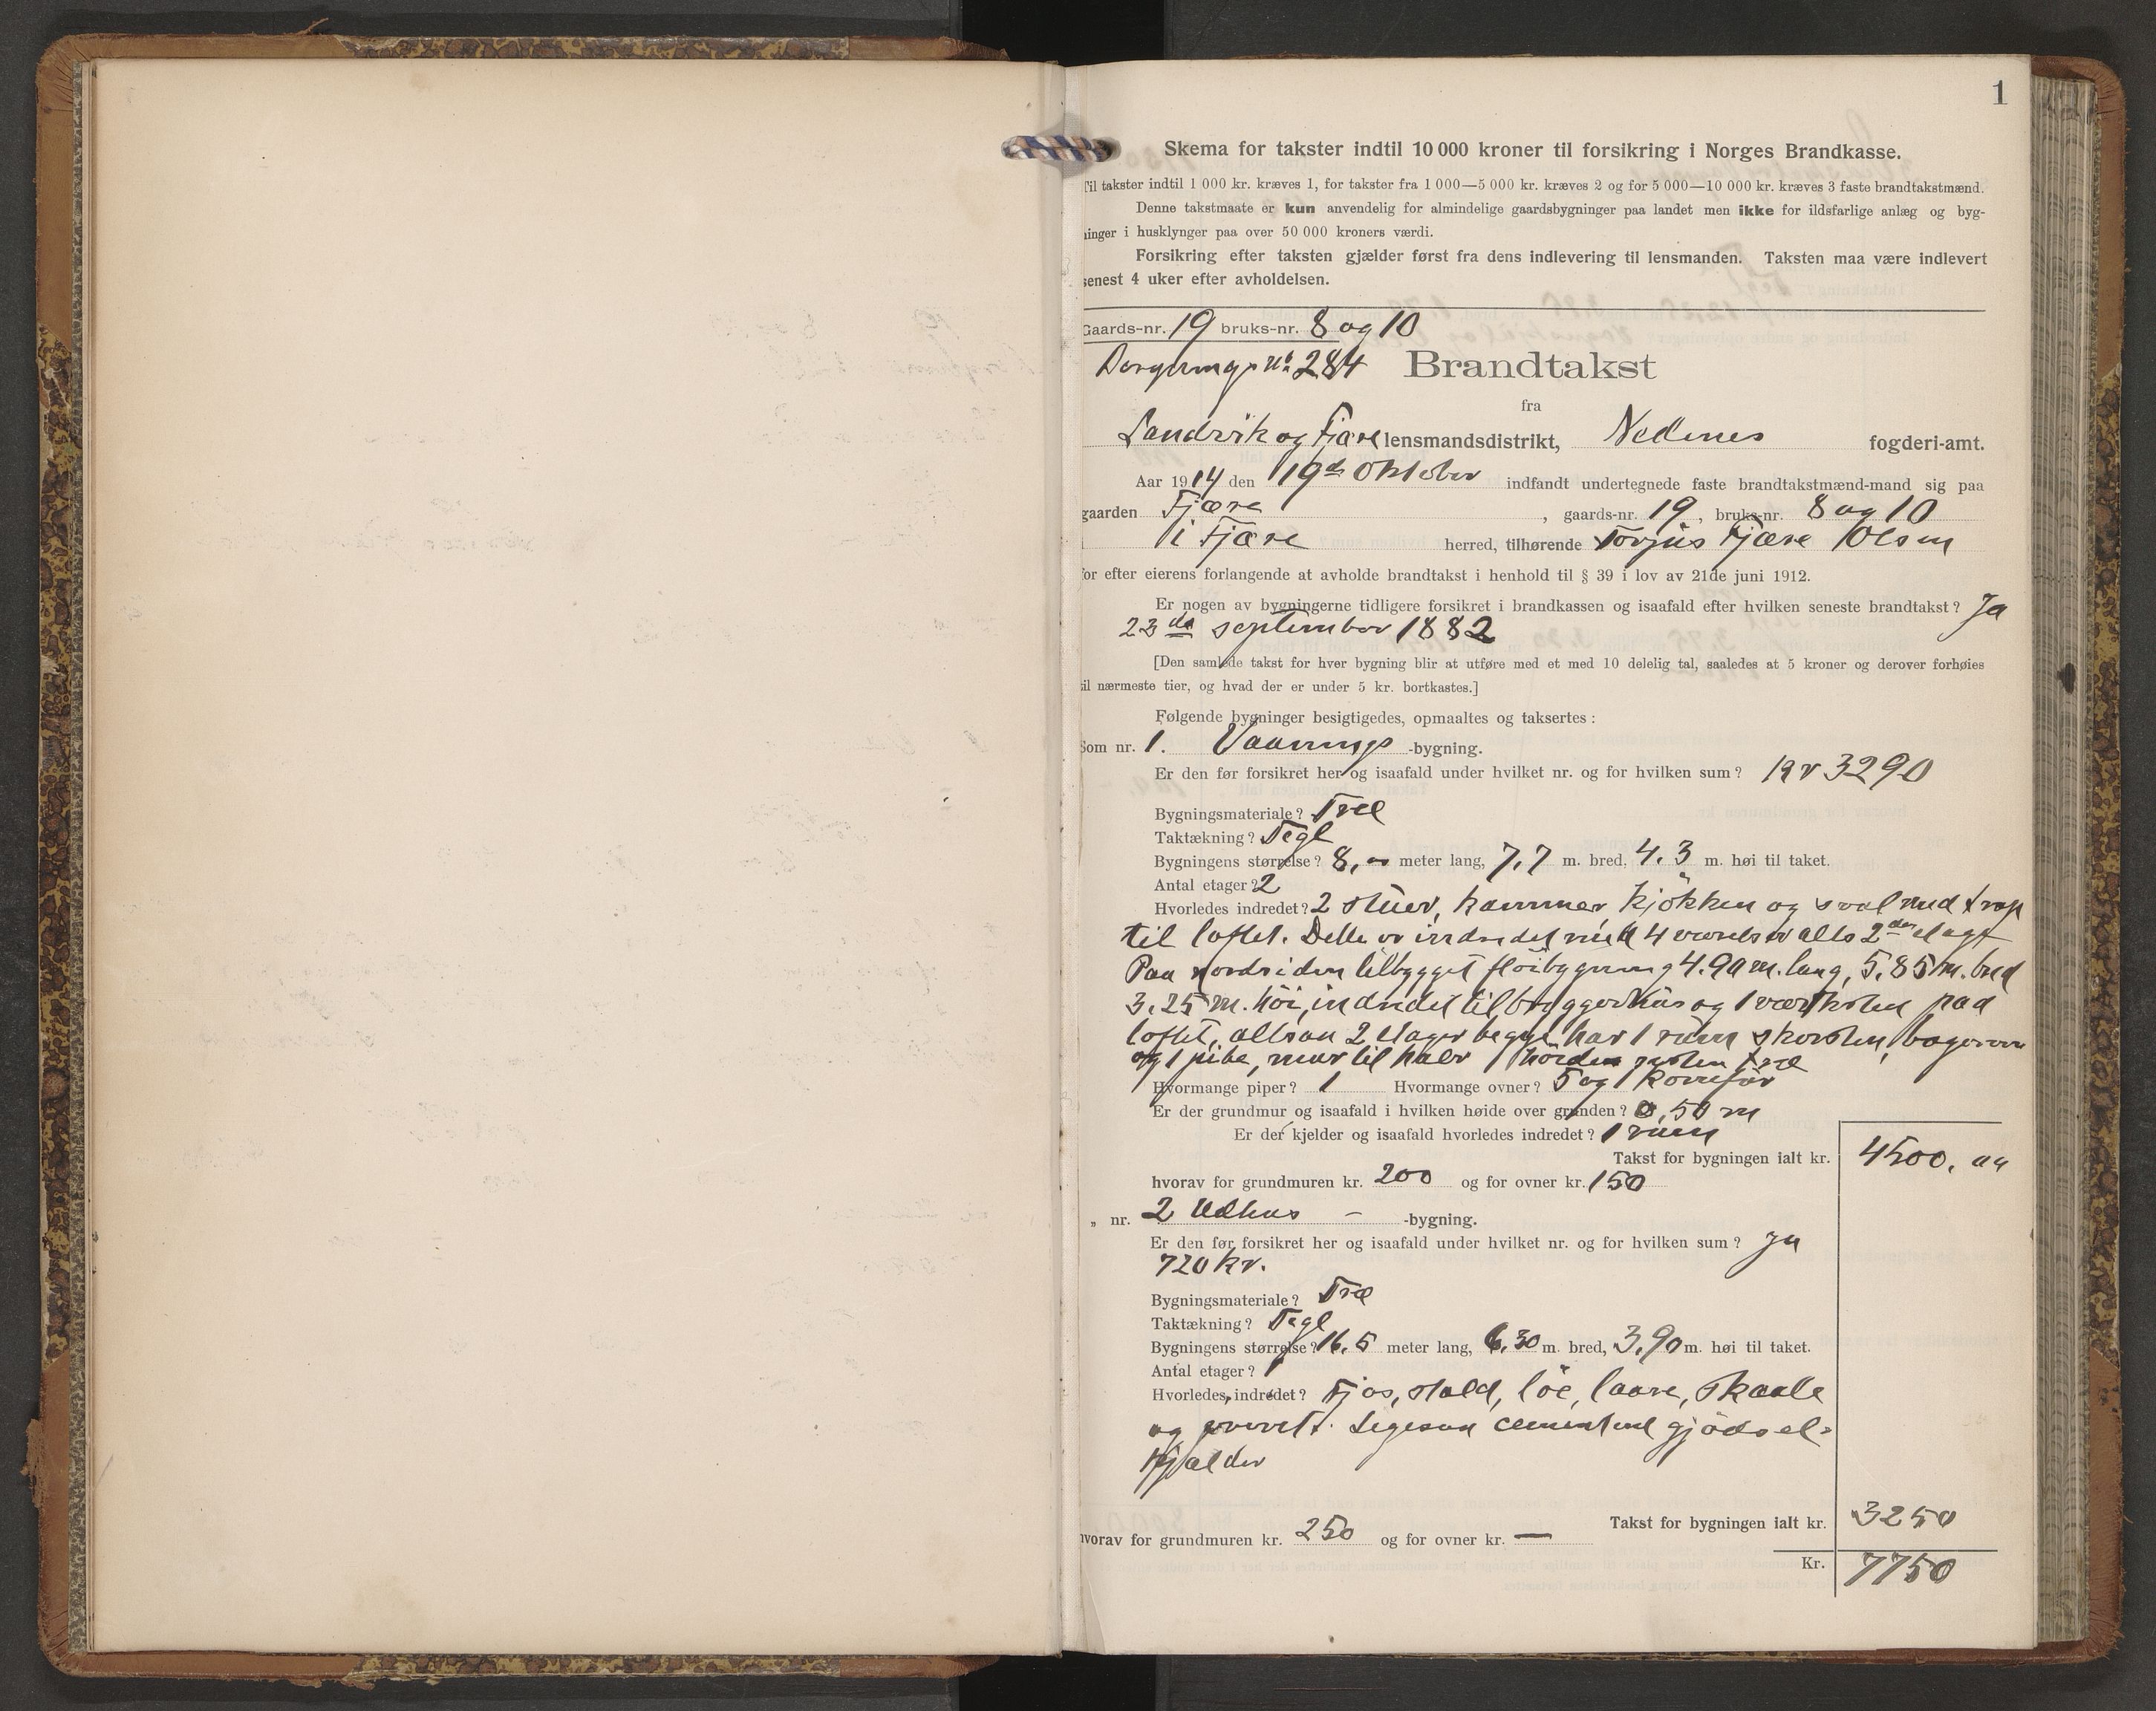 1
Skema for takster indtil 10 000 kroner til forsikring i Norges Brandkasse.
Til takster indtil 1 000 kr. kræves 1, for takster fra 1 000—5 000 kr. kræves 2 og for 5 000—10 000 kr. kræves 3 faste brandtakstmænd.
Denne takstmaate er kun anvendelig for almindelige gaardsbygninger paa landet men ikke for ildsfarlige anlæg og byg-
ninger i husklynger paa over 50 000 kroners værdi.
Forsikring efter taksten gjælder først fra dens indlevering til lensmanden. Taksten maa være indlevert
senest 4 uker efter avholdelsen.
Gaards-nr. 19 bruks-nr. 8 og 10
No 284 Brandtakst
fra
Landvik og Fjære lensmandsdistrikt, Nedenes fogderi-amt.
Aar 1914 den 19de Oktober indfandt undertegnede faste brandtakstmænd-mand sig paa
gaarden Fjære, gaards-nr. 19, bruks-nr. 8 og 10
i Fjære herred, tilhørende Torjus Fjære Olsen
for efter eierens forlangende at avholde brandtakst i henhold til § 39 i lov av 21de juni 1912.
Er nogen av bygningerne tidligere forsikret i brandkassen og isaafald efter hvilken seneste brandtakst? Ja
23de september 1882
[Den samlede takst for hver bygning blir at utføre med et med 10 delelig tal, saaledes at 5 kroner og derover forhøies
til nærmeste tier, og hvad der er under 5 kr. bortkastes.]
Følgende bygninger besigtigedes, opmaaltes og taksertes:
Som nr. 1. Vaanings -bygning.
Er den før forsikret her og isaafald under hvilket nr. og for hvilken sum? Kr 3290
Bygningsmateriale? Træ
Taktækning? Tegl
Bygningens størrelse? 8, meter lang, 7,7 m. bred, 4.3 m. høi til taket.
Antal etager? 2
Hvorledes indredet? 2 stuer, kammer, kjøkken og sval med trap
til loftet. Dette er indredet med 4 værelser alts 2den etage
Paa nordsiden tilbygget fløibygning 4.90 m. lang, 5.85 m. bred
3.25 m. høi, indredet til bryggerhus og 1 værelse paa
loftet, altsaa 2 etager begge har 1 rum skorsten, bagerovn
og 1 pibe, mur til halv
Hvormange piper? 1 Hvormange ovner? 5 og 1 Komfør
Er der grundmur og isaafald i hvilken høide over grunden? 0,50 m
Er der kjelder og isaafald hvorledes indredet? 1 rum
Takst for bygningen ialt kr. 4500,
hvorav for grundmuren kr. 200 og for ovner kr. 150
„ nr. 2 Udhus — -bygning.
Er den før forsikret her og isaafald under hvilket nr. og for hvilken sum? Ja
720 kr.
Bygningsmateriale? Træ
Taktækning? Tegl
Bygningens størrelse? 16,5 meter lang, 6,30 m. bred, 3,90 m. høi til taket.
Antal etager? 1
Hvorledes indredet? Fjøs, stald, løe, laave, skaale
og Ligesaa gjødsel-
kjælder
Takst for bygningen ialt kr. 3250
hvorav for grundmuren kr. 250 og for ovner kr. —
Kr. 7750